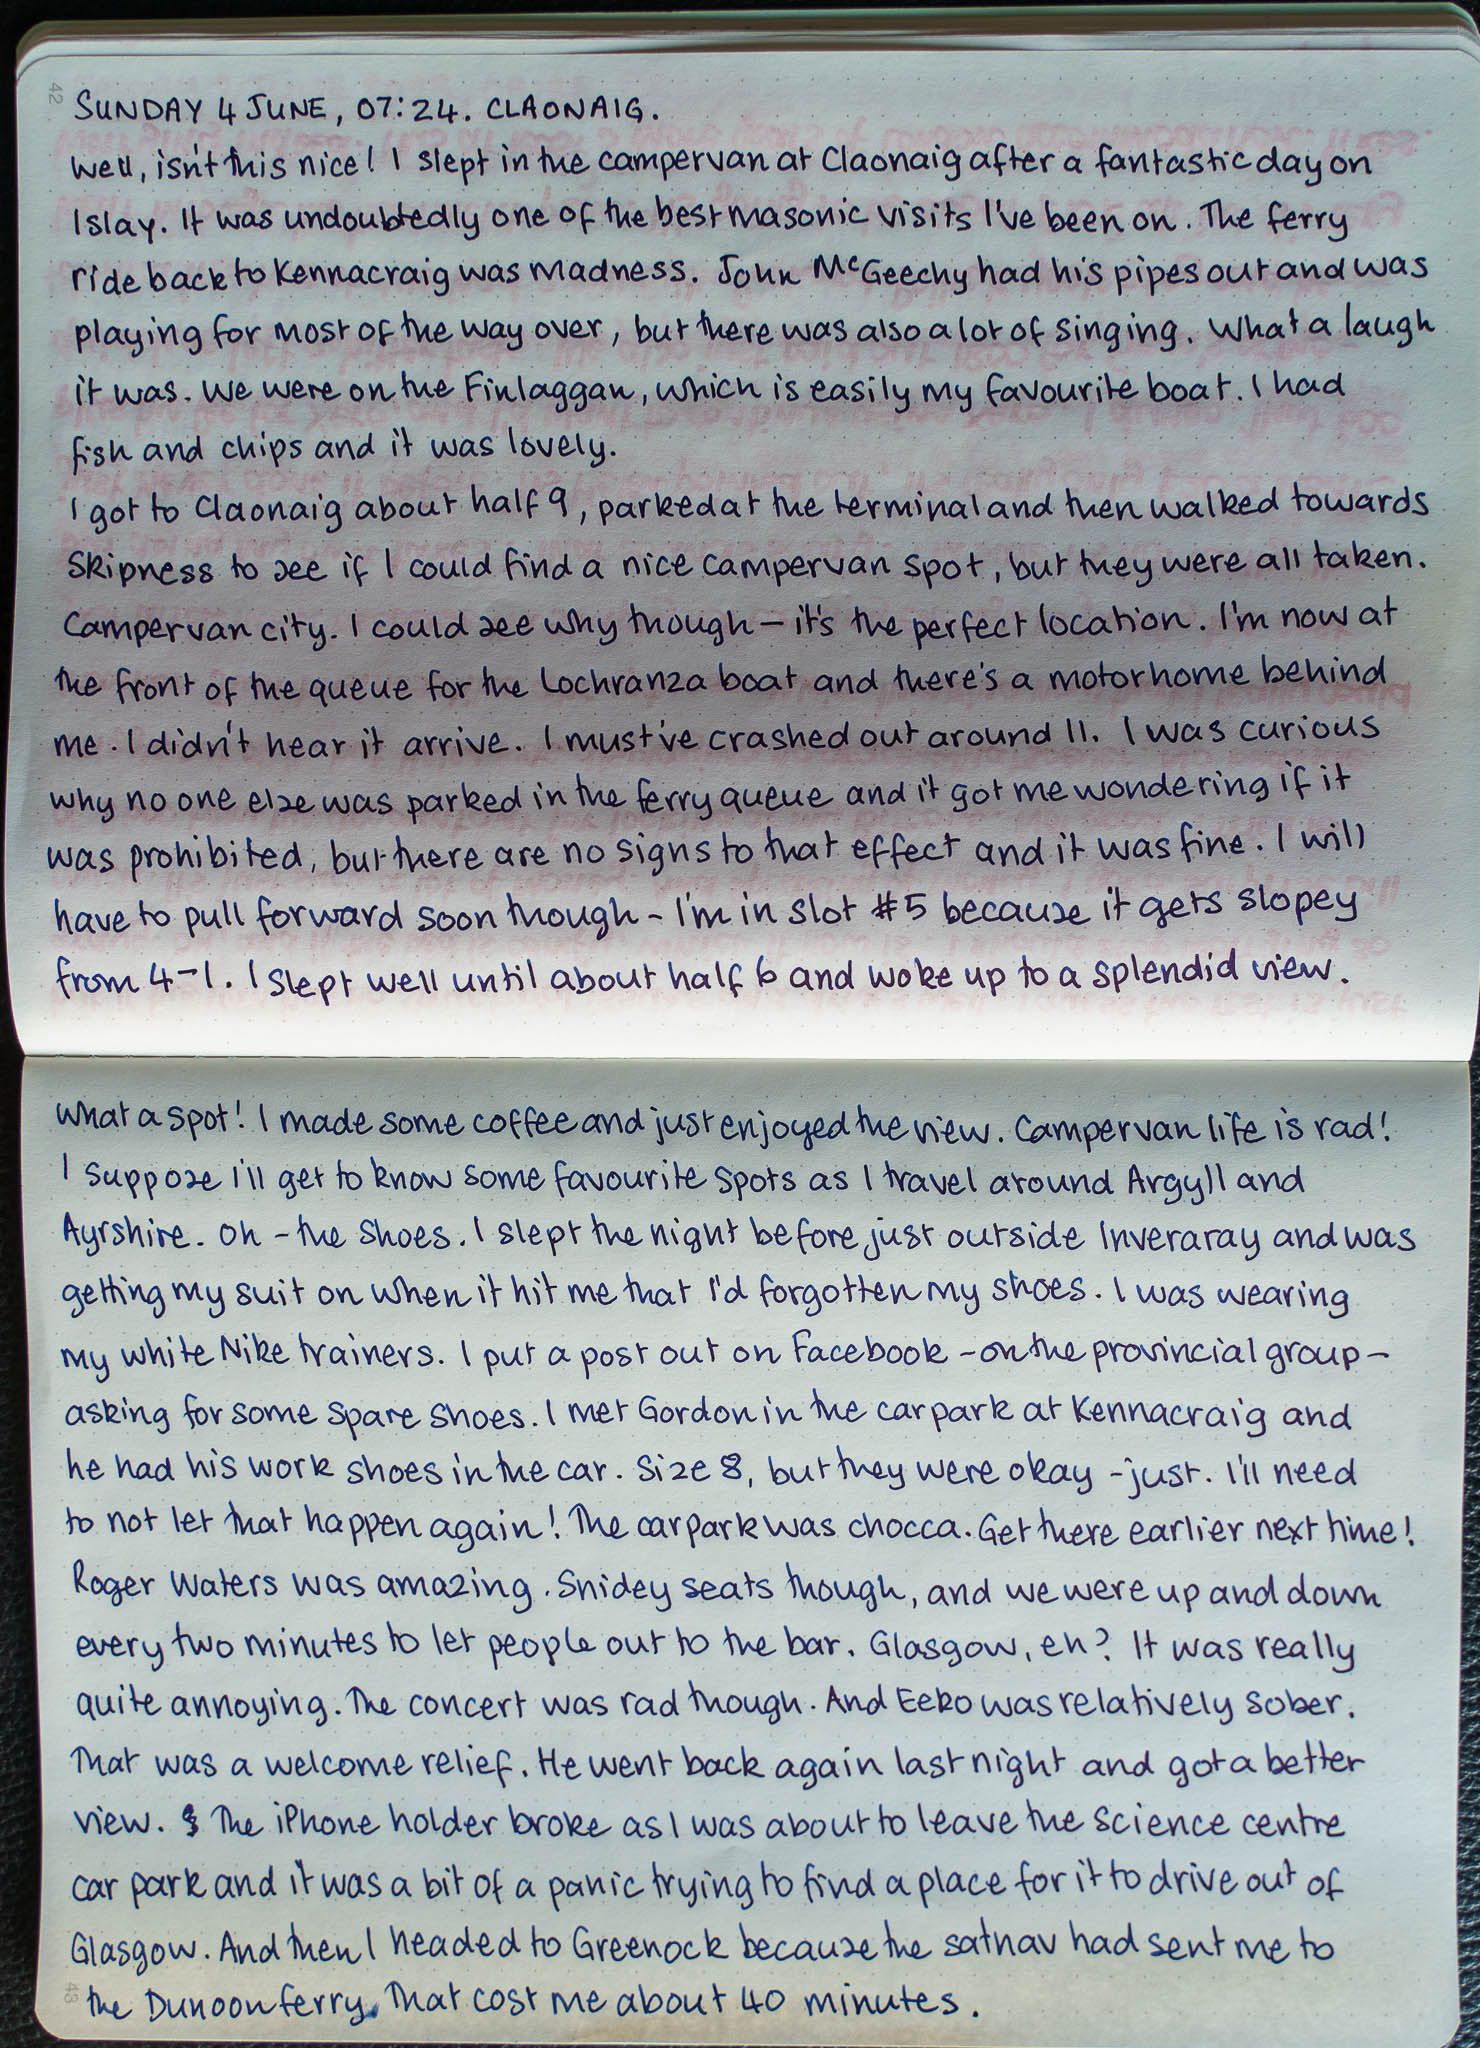 42
SUNDAY 4 JUNE, 07:24. CLAONAIG.
Well, isn't this nice! I slept in the campervan at Claonaig after a fantastic day on
Islay. It was undoubtedly one of the best masonic visits I've been on. The ferry
ride back to Kennacraig was madness. John McGeechy had his pipes out and was
playing for most of the way over, but there was also a lot of singing. What a laugh
it was. We were on the Finlaggan, which is easily my favourite boat. I had
fish and chips and it was lovely.
I got to Claonaig about half 9, parked at the terminal and then walked towards
Skipness to see if I could find a nice campervan spot, but they were all taken.
Campervan city. I could see why though – it's the perfect location. I'm now at
the front of the queue for the Lochranza boat and there's a motorhome behind
me. I didn't hear it arrive. I must've crashed out around 11. I was curious
why no one else was parked in the ferry queue and it got me wondering if it
was prohibited, but there are no signs to that effect and it was fine. I will
have to pull forward soon though – I'm in slot #5 because it gets slopey
from 4–1. I slept well until about half 6 and woke up to a splendid view.
What a spot! I made some coffee and just enjoyed the view. Campervan life is rad!
I suppose I'll get to know some favourite spots as I travel around Argyll and
Ayrshire. Oh – the shoes. I slept the night before just outside Inveraray and was
getting my suit on when it hit me that I'd forgotten my shoes. I was wearing
my white Nike trainers. I put a post out on Facebook – on the provincial group –
asking for some spare shoes. I met Gordon in the car park at Kennacraig and
he had his work shoes in the car. Size 8, but they were okay – just. I'll need
to not let that happen again! The car park was chocca. Get there earlier next time!
Roger Waters was amazing. Snidey seats though, and we were up and down
every two minutes to let people out to the bar. Glasgow, eh? It was really
quite annoying. The concert was rad though. And Eeko was relatively sober.
That was a welcome relief. He went back again last night and got a better
view. The iPhone holder broke as I was about to leave the science centre
car park and it was a bit of a panic trying to find a place for it to drive out of
Glasgow. And then I headed to Greenock because the satnav had sent me to
43
the Dunoon ferry. That cost me about 40 minutes.